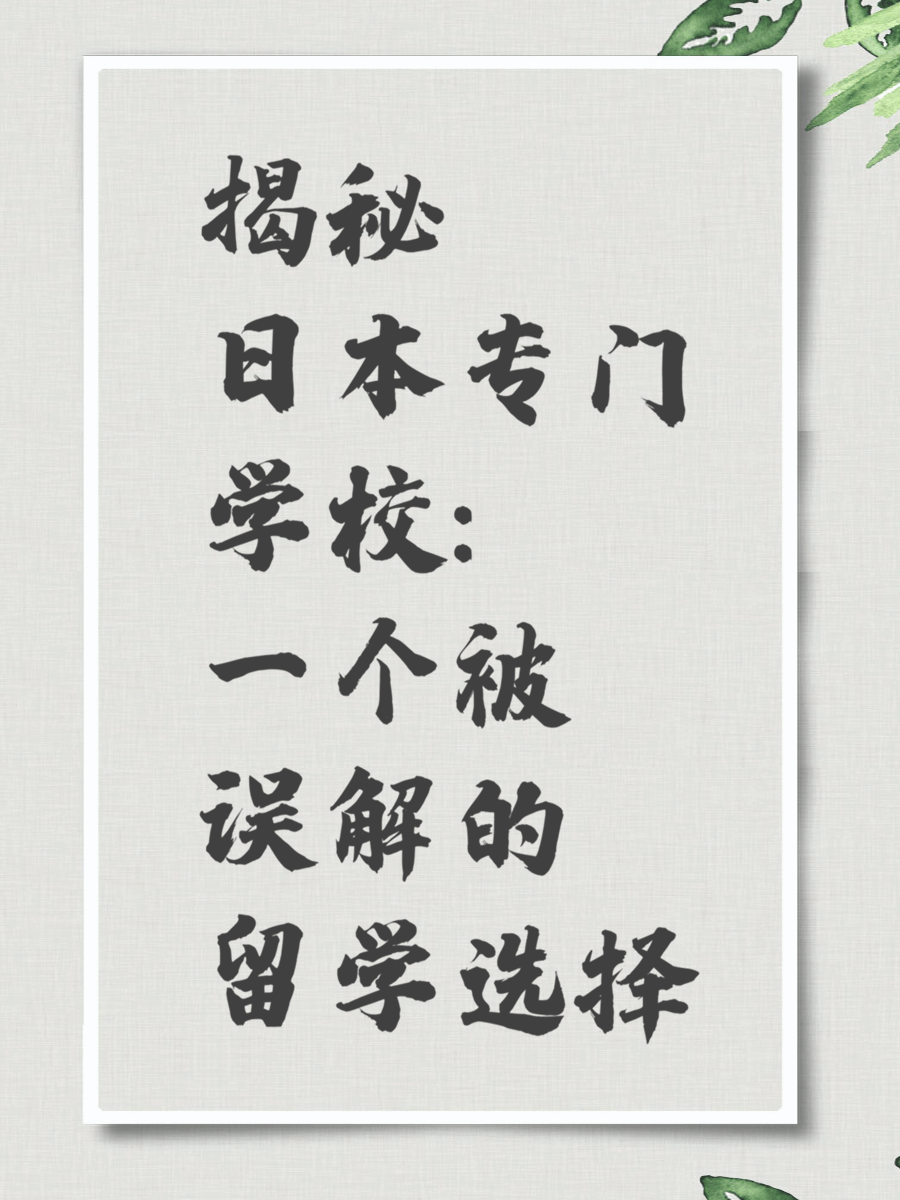 揭秘
日本专门
学校:
一个被
误解的
留学选择